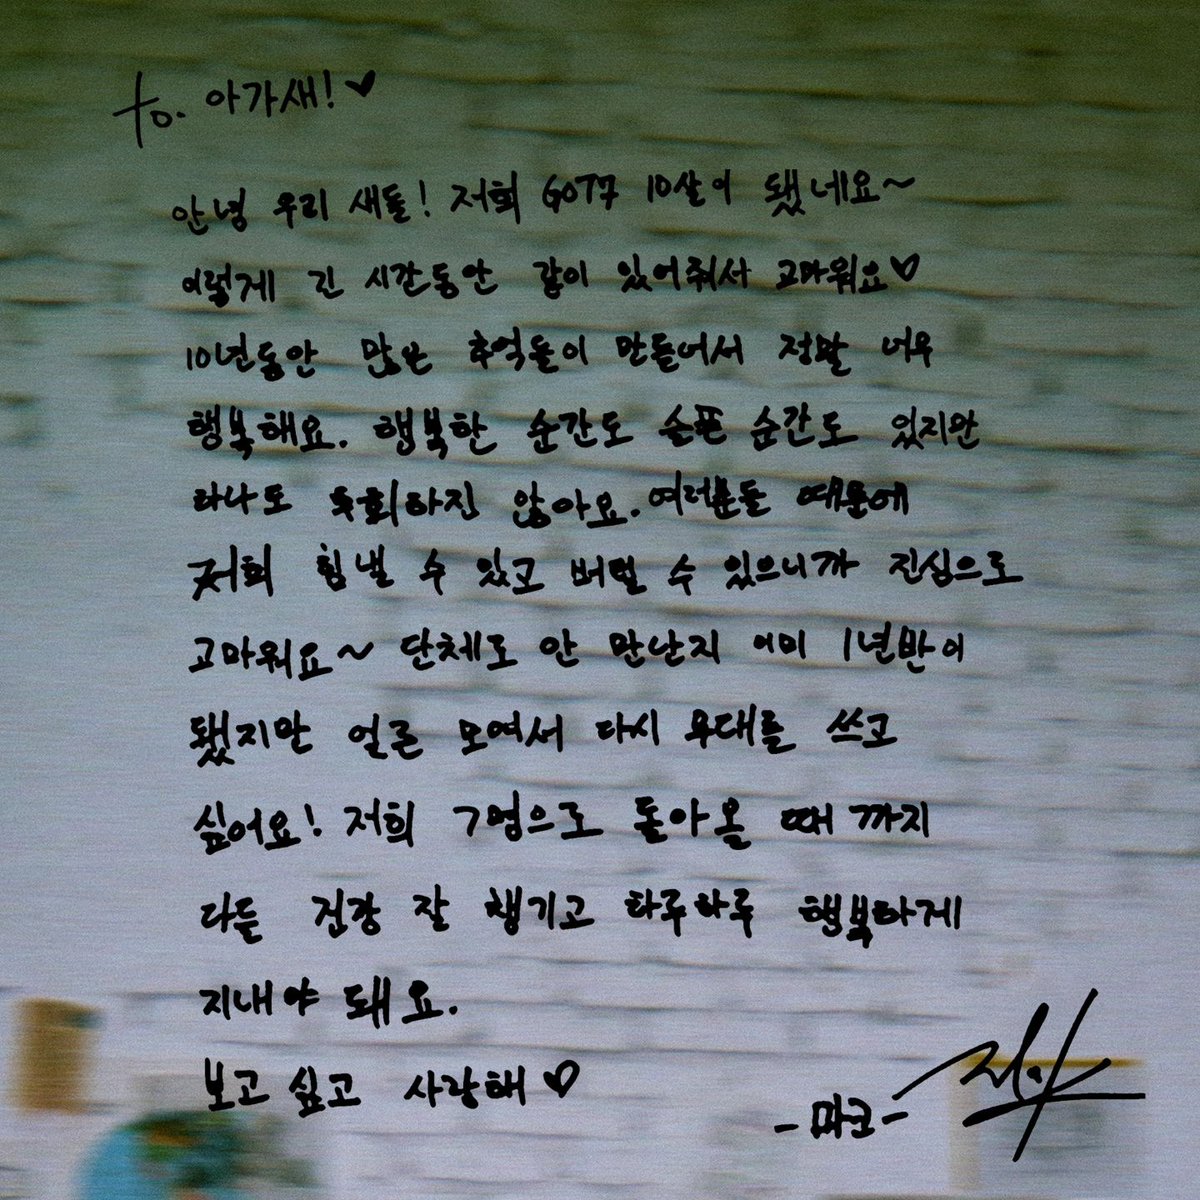 to. 아가새! ♥
안녕 우리 새들! 저희 GOT7 10살이 됐네요~
이렇게 긴 시간동안 같이 있어줘서 고마워요♡
10년동안 많은 추억들이 만들어서 정말 너무
행복해요. 행복한 순간도 슬픈 순간도 있지만
하나도 후회하진 않아요. 여러분들 때문에
저희 힘낼 수 있고 버틸 수 있으니까 진심으로
고마워요~ 단체로 안 만난지 이미 1년반이
됐지만 얼른 모여서 다시 무대를 쓰고
싶어요! 저희 7명으로 돌아올 때까지
다들 건강 잘 챙기고 하루하루 행복하게
지내야 돼요.
보고싶고 사랑해 ♡
-마크-